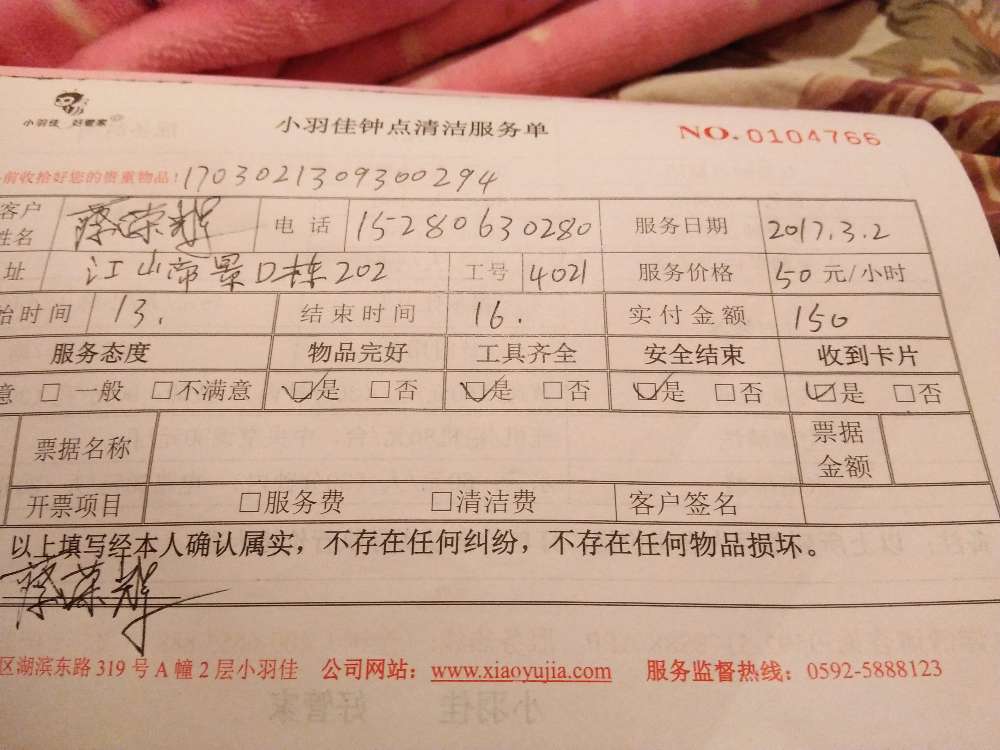 小羽佳 好管家
小羽佳钟点清洁服务单
NO.0104766
前收拾好您的贵重物品! 1703021309300294
客户姓名 蔡荣辉 电话 15280630280 服务日期 2017.3.2
址 江山帝景D栋202 工号 4021 服务价格 50元/小时
始时间 13. 结束时间 16. 实付金额 150
服务态度 物品完好 工具齐全 安全结束 收到卡片
意 □一般 □不满意 ☑是 □否 ☑是 □否 ☑是 □否 ☑是 □否
票据名称 票据金额
开票项目 □服务费 □清洁费 客户签名
以上填写经本人确认属实，不存在任何纠纷，不存在任何物品损坏。
蔡荣辉
区湖滨东路319号A幢2层小羽佳 公司网站：www.xiaoyujia.com 服务监督热线：0592-5888123